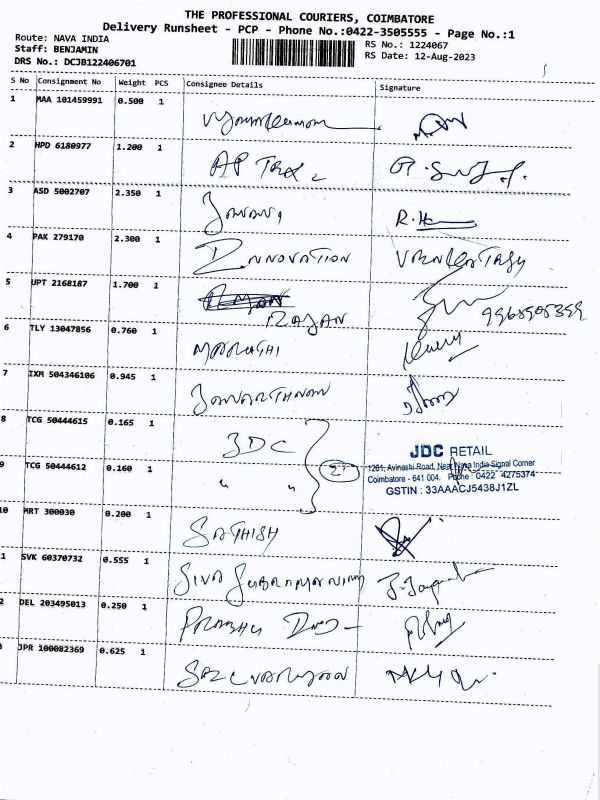 THE PROFESSIONAL COURIERS, COIMBATORE
Delivery Runsheet - PCP - Phone No.:0422-3505555 - Page No.:1
Route: NAVA INDIA
Staff: BENJAMIN
DRS No.: DCJB122406701
RS No.: 1224067
RS Date: 12-Aug-2023
S No Consignment No Weight PCS Consignee Details Signature
1 MAA 101459991 0.500 1
2 HPD 6180977 1.200 1 AP
3 ASD 5002707 2.350 1
4 PAK 279170 2.300 1 INNOVATION
5 UPT 2168187 1.700 1
RAJAN
6 TLY 13047856 0.760 1 MARUTHI
7 IXM 504346106 0.945 1 JANARTHNAN
8 TCG 50444615 0.165 1 JDC
JDC RETAIL
1261, Avinashi Road, Near Nava India Signal Corner
9 TCG 50444612 0.160 1 " "
Coimbatore - 641 004. Phone : 0422 4275374
GSTIN : 33AAACJ5438J1ZL
10 MRT 300030 0.200 1 SATHISH
1 SVK 60370732 0.555 1 SIVA
2 DEL 203495013 0.250 1 PRABHU
3 JPR 100082369 0.625 1